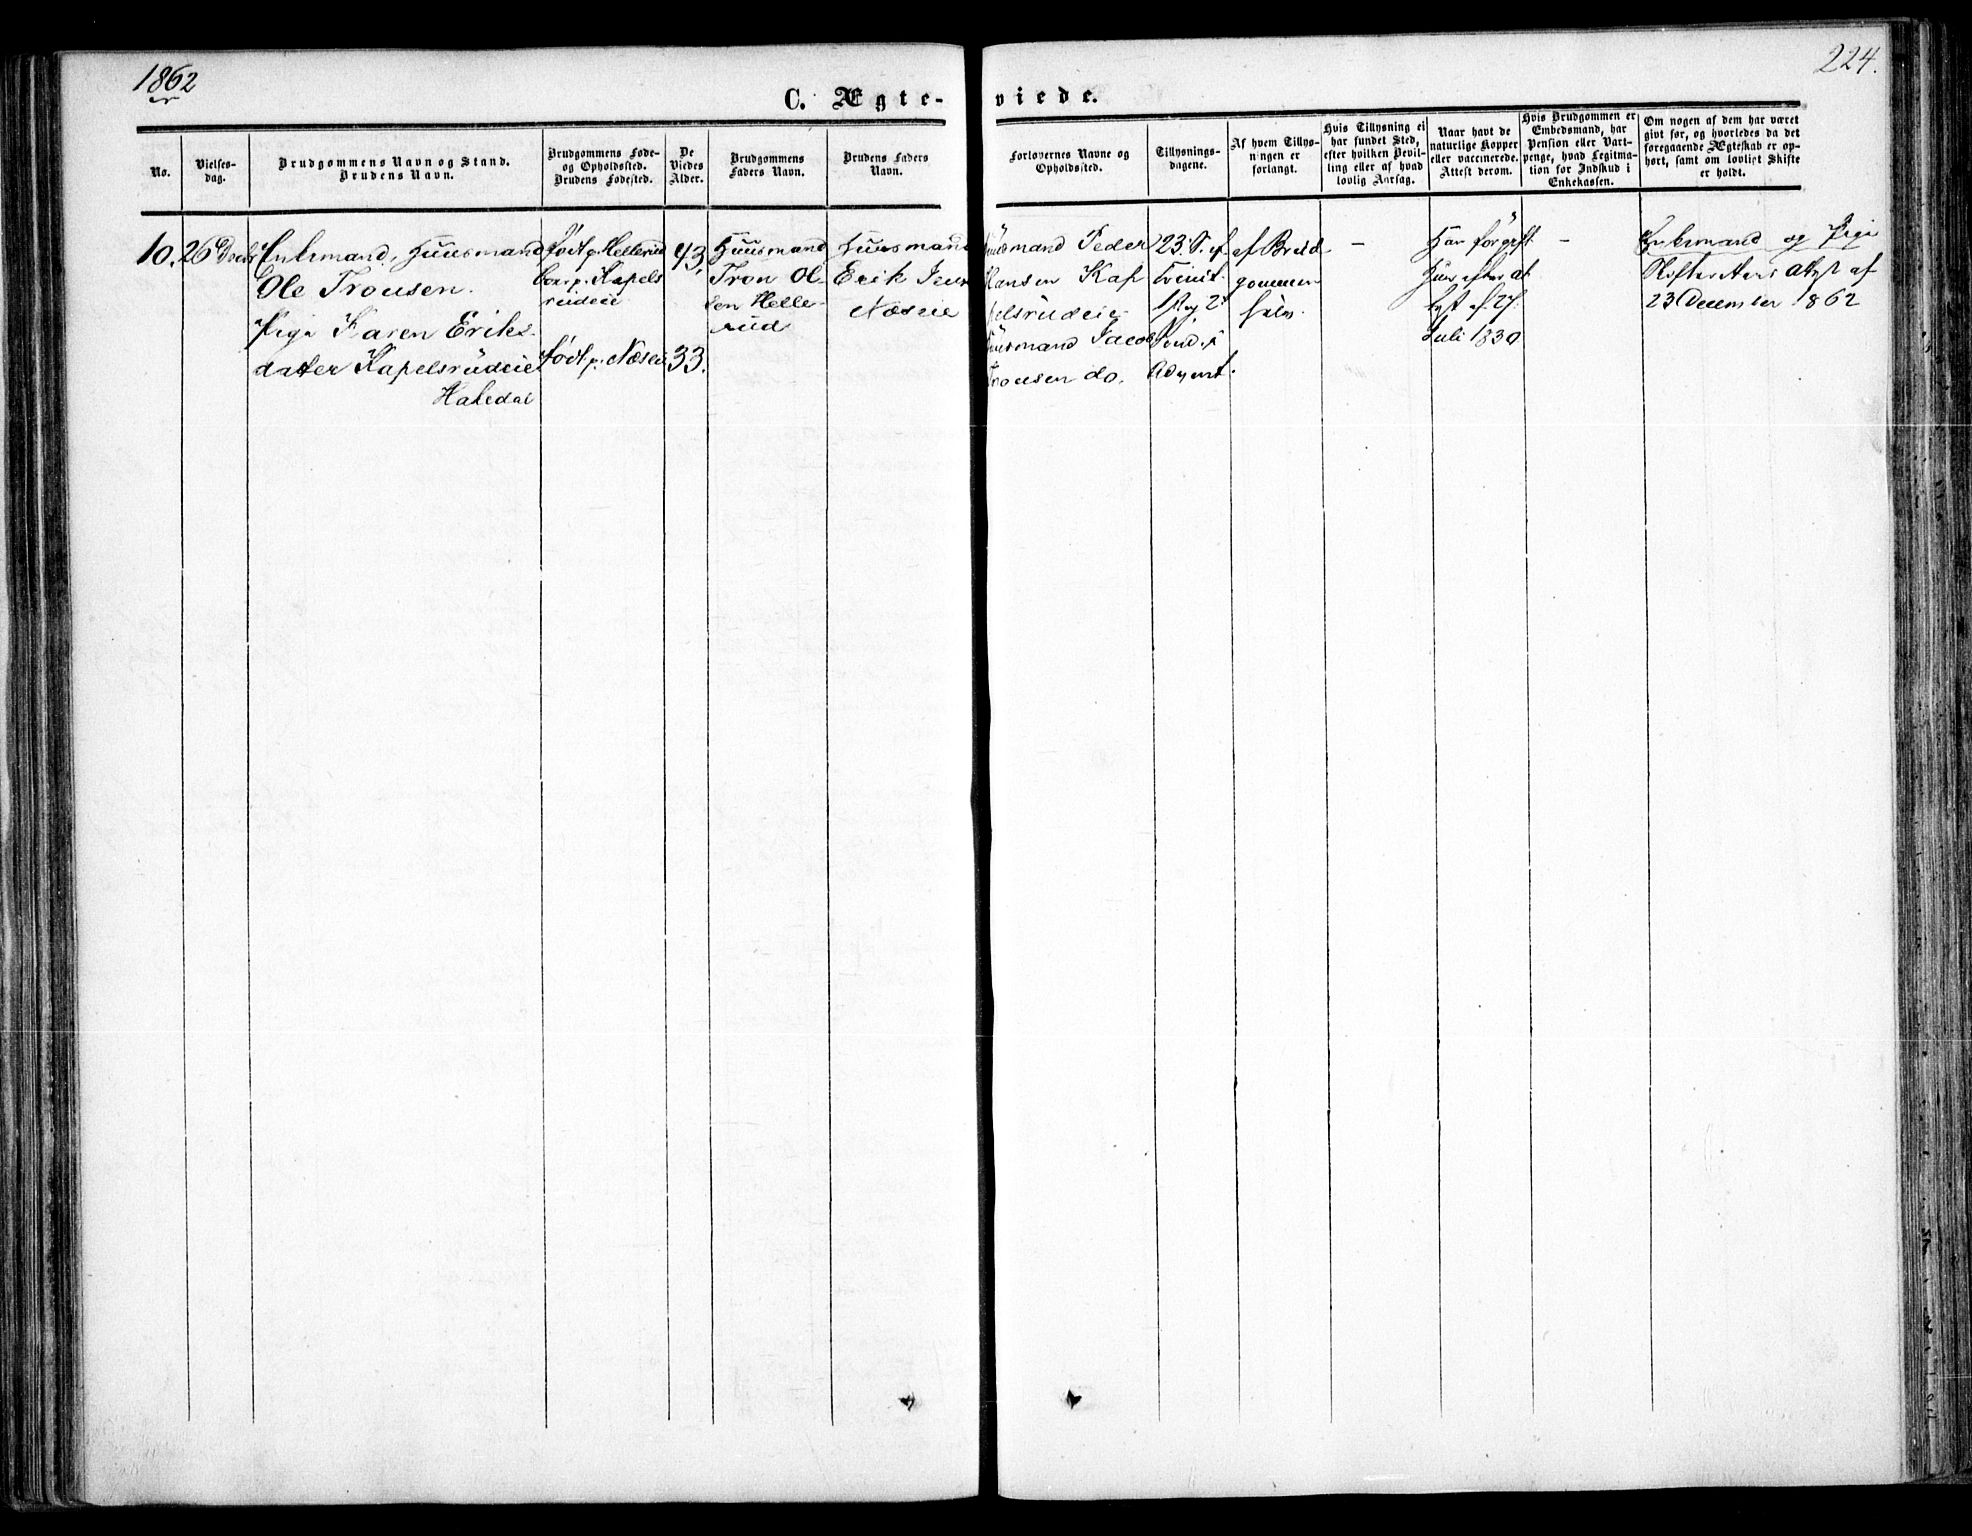 1862
224.
C. Ægte-
viede.
No.
Vielses-
dag.
Brudgommens Navn og Stand.
Brudens Navn.
Brudgommens Føde-
og Opholdssted.
Brudens Fødested.
De
Viedes
Alder.
Brudgommens
Faders Navn.
Brudens Faders
Navn.
Forlovernes Navne og
Opholdssted.
Tillysnings-
dagene.
Af hvem Tillys-
ningen er
forlangt.
Hvis Tillysning ei
har fundet Sted,
efter hvilken Bevil-
ling eller af hvad
lovlig Aarsag.
Naar havt de
naturlige Kopper
eller vaccinerede.
Attest derom.
Hvis Brudgommen er
Embedsmand, har
Pension eller Vart-
penge, hvad Legitima-
tion for Indskud i
Enkekassen.
Om nogen af dem har været
givt før, og hvorledes da det
foregaaende Ægteskab er op-
hørt, samt om lovligt Skifte
er holdt.
10.
26 Decbr
Enkemand, Huusmand
Ole Tronsen.
Pige Karen Eriks-
datter Kapelsrudeie
Hakedal
født p. Hellerud
boer p. Kapels
rudeie
født p. Næseie
43,
33.
Huusmand
Tron Ol-
sen Helle-
rud
Huusmand
Erik Jens
Næseie
Huusmand Peder
Hansen Kap
elsrudeie
Huusmand Jacob
Tronsen do.
23. S. ef.
Treinit.
1st og 2n
Sønd. i
Advent.
af Brud
gommen
selv.
–
Han forgivt
Hun efter at
tyst af 27.
Juli 1830
–
Enkemand og Pige
Skifterettens Attest af
23 December 1862